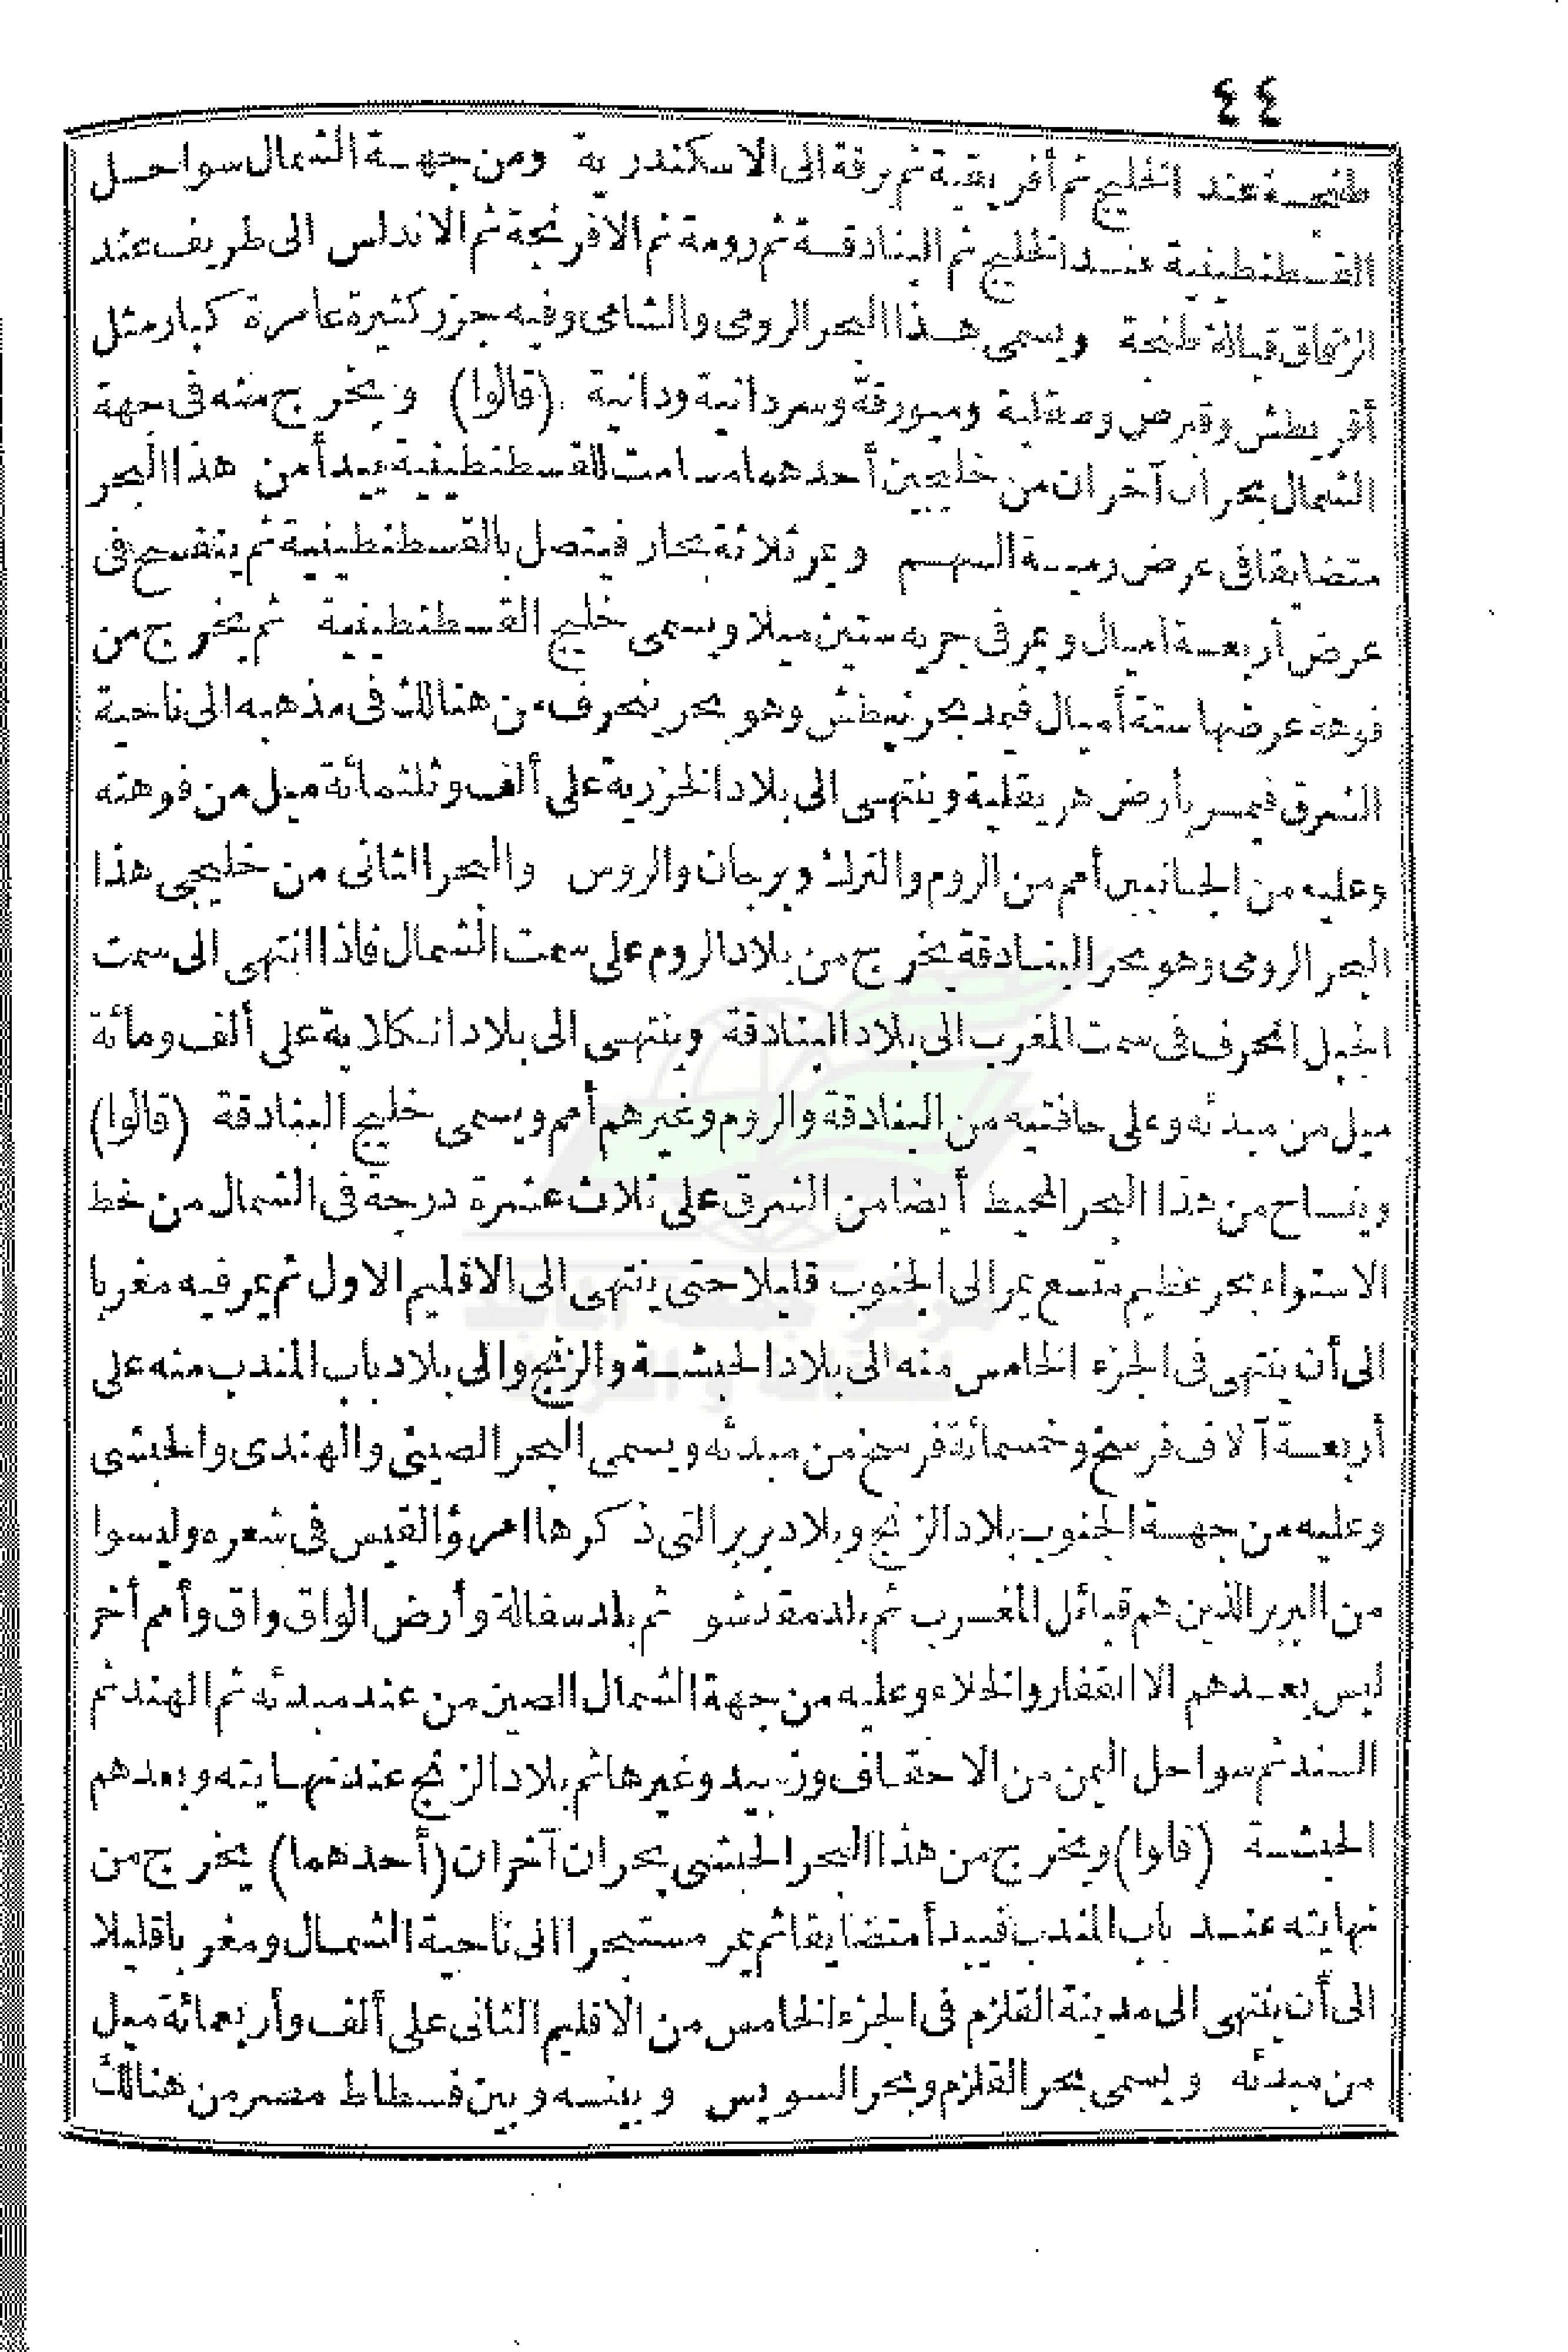 ٤٤
طنجة عند الخليج ثم أفريقية ثم برقة الى الاسكندرية ومن جهة الشمال سواحل
القسطنطينية عند الخليج ثم البنادقة ثم رومة ثم الافرنجة ثم الاندلس الى طريف عند
الزقاق قبالة طنجة ويسمى هذا البحر الرومى والشامى وفيه جزر كثيرة عامرة كبار مثل
أقريطش وقبرص وصقلية وميورقة وسردانية ودانية (قالوا) ويخرج منه فى جهة
الشمال بحران آخران من خليجين أحدهما مسامت للقسطنطينية يبدأ من هذا البحر
متضايقا فى عرض رمية السهم ويمر ثلاثة بحار فيتصل بالقسطنطينية ثم ينفسح فى
عرض أربعة اميال ويمر فى جريه ستين ميلا ويسمى خليج القسطنطينية ثم يخرج من
فوهة عرضها ستة أميال فيمد بحر نيطش وهو بحر ينحرف من هنالك فى مذهبه الى ناحية
الشرق فيمر بأرض هريقلية وينتهى الى بلاد الخزرية على ألف وثلثمائة ميل من فوهته
وعليه من الجانبين أمم من الروم والترك وبرجان والروس والبحر الثانى من خليجى هذا
البحر الرومى وهو بحر البنادقة يخرج من بلاد الروم على سمت الشمال فاذا انتهى الى سمت
الجبل انحرف فى سمت المغرب الى بلاد البنادقة وينتهى الى بلاد انكلاية على ألف ومائة
ميل من مبدئه وعلى حافتيه من البنادقة والروم وغيرهم أمم ويسمى خليج البنادقة (قالوا)
وينساح من هذا البحر المحيط أيضا من الشرق على ثلاث عشرة درجة فى الشمال من خط
الاستواء بحر عظيم متسع يمر الى الجنوب قليلا حتى ينتهى الى الاقليم الاول ثم يمر فيه مغربا
الى أن ينتهى فى الجزء الخامس منه الى بلاد الحبشة والزنج والى بلاد باب المندب منه على
أربعة آلاف فرسخ وخمسمائة فرسخ من مبدئه ويسمى البحر الصينى والهندى والحبشى
وعليه من جهة الجنوب بلاد الزنج وبلاد بربر التى ذكرها امرؤ القيس فى شعره وليسوا
من البربر الذين هم قبائل المغرب ثم بلد مقدشو ثم بلد سفالة وأرض الواق واق وأمم أخر
ليس بعدهم الا القفار والخلاء وعليه من جهة الشمال الصين من عند مبدئه ثم الهند ثم
السند ثم سواحل اليمن من الاحقاف وزبيد وغيرها ثم بلاد الزنج عند نهايته وبعدهم
الحبشة (قالوا) ويخرج من هذا البحر الحبشى بحران آخران (أحدهما) يخرج من
نهايته عند باب المندب فيبدأ متضايقا ثم يمر مستبحرا الى ناحية الشمال ومغربا قليلا
الى أن ينتهى الى مدينة القلزم فى الجزء الخامس من الاقليم الثانى على ألف وأربعمائة ميل
من مبدئه ويسمى بحر القلزم وبحر السويس وبينه وبين فسطاط مصر من هنالك